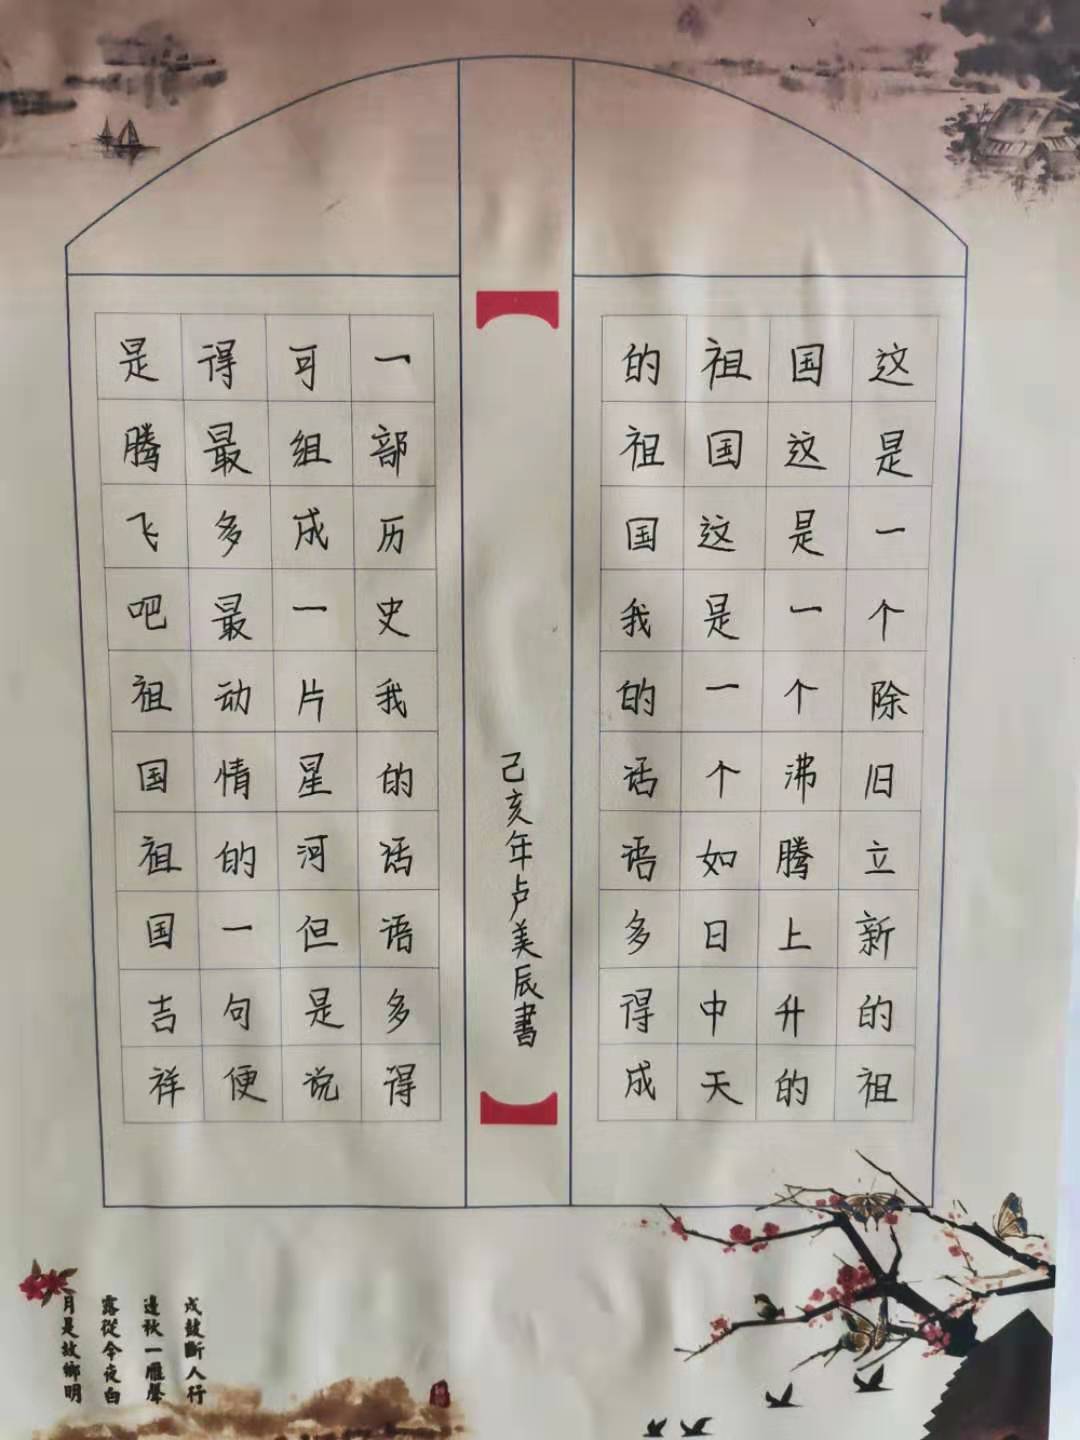 这是一个除旧立新的祖
国这是一个沸腾上升的
祖国这是一个如日中天
的祖国我的话语多得成
一部历史我的话语多得
可组成一片星河但是说
得最多最动情的一句便
是腾飞吧祖国祖国吉祥
己亥年卢美辰書
戍鼓斷人行
邊秋一雁聲
露從今夜白
月是故鄉明